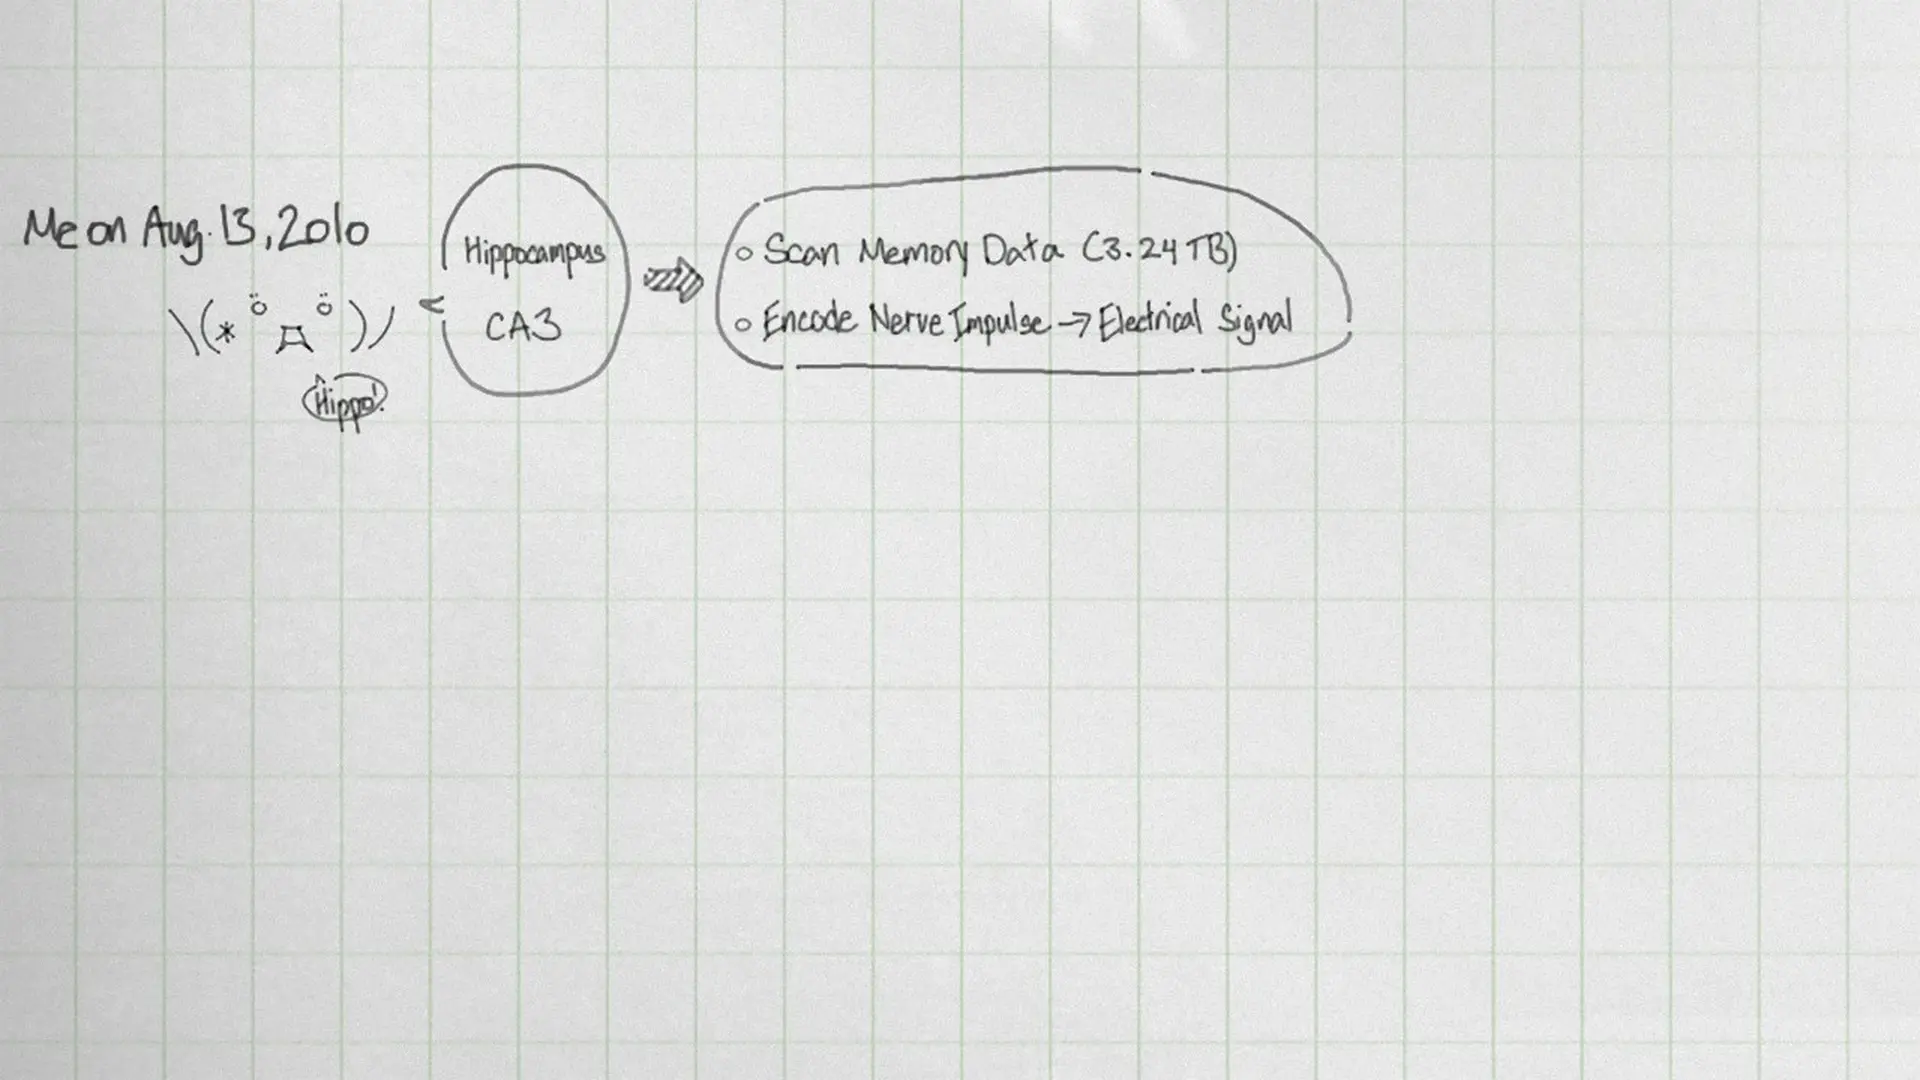 Me on Aug. 13, 2010
\(* ö д ö )/
Hippo!
Hippocampus
CA3
Scan Memory Data (3.24TB)
Encode Nerve Impulse → Electrical Signal